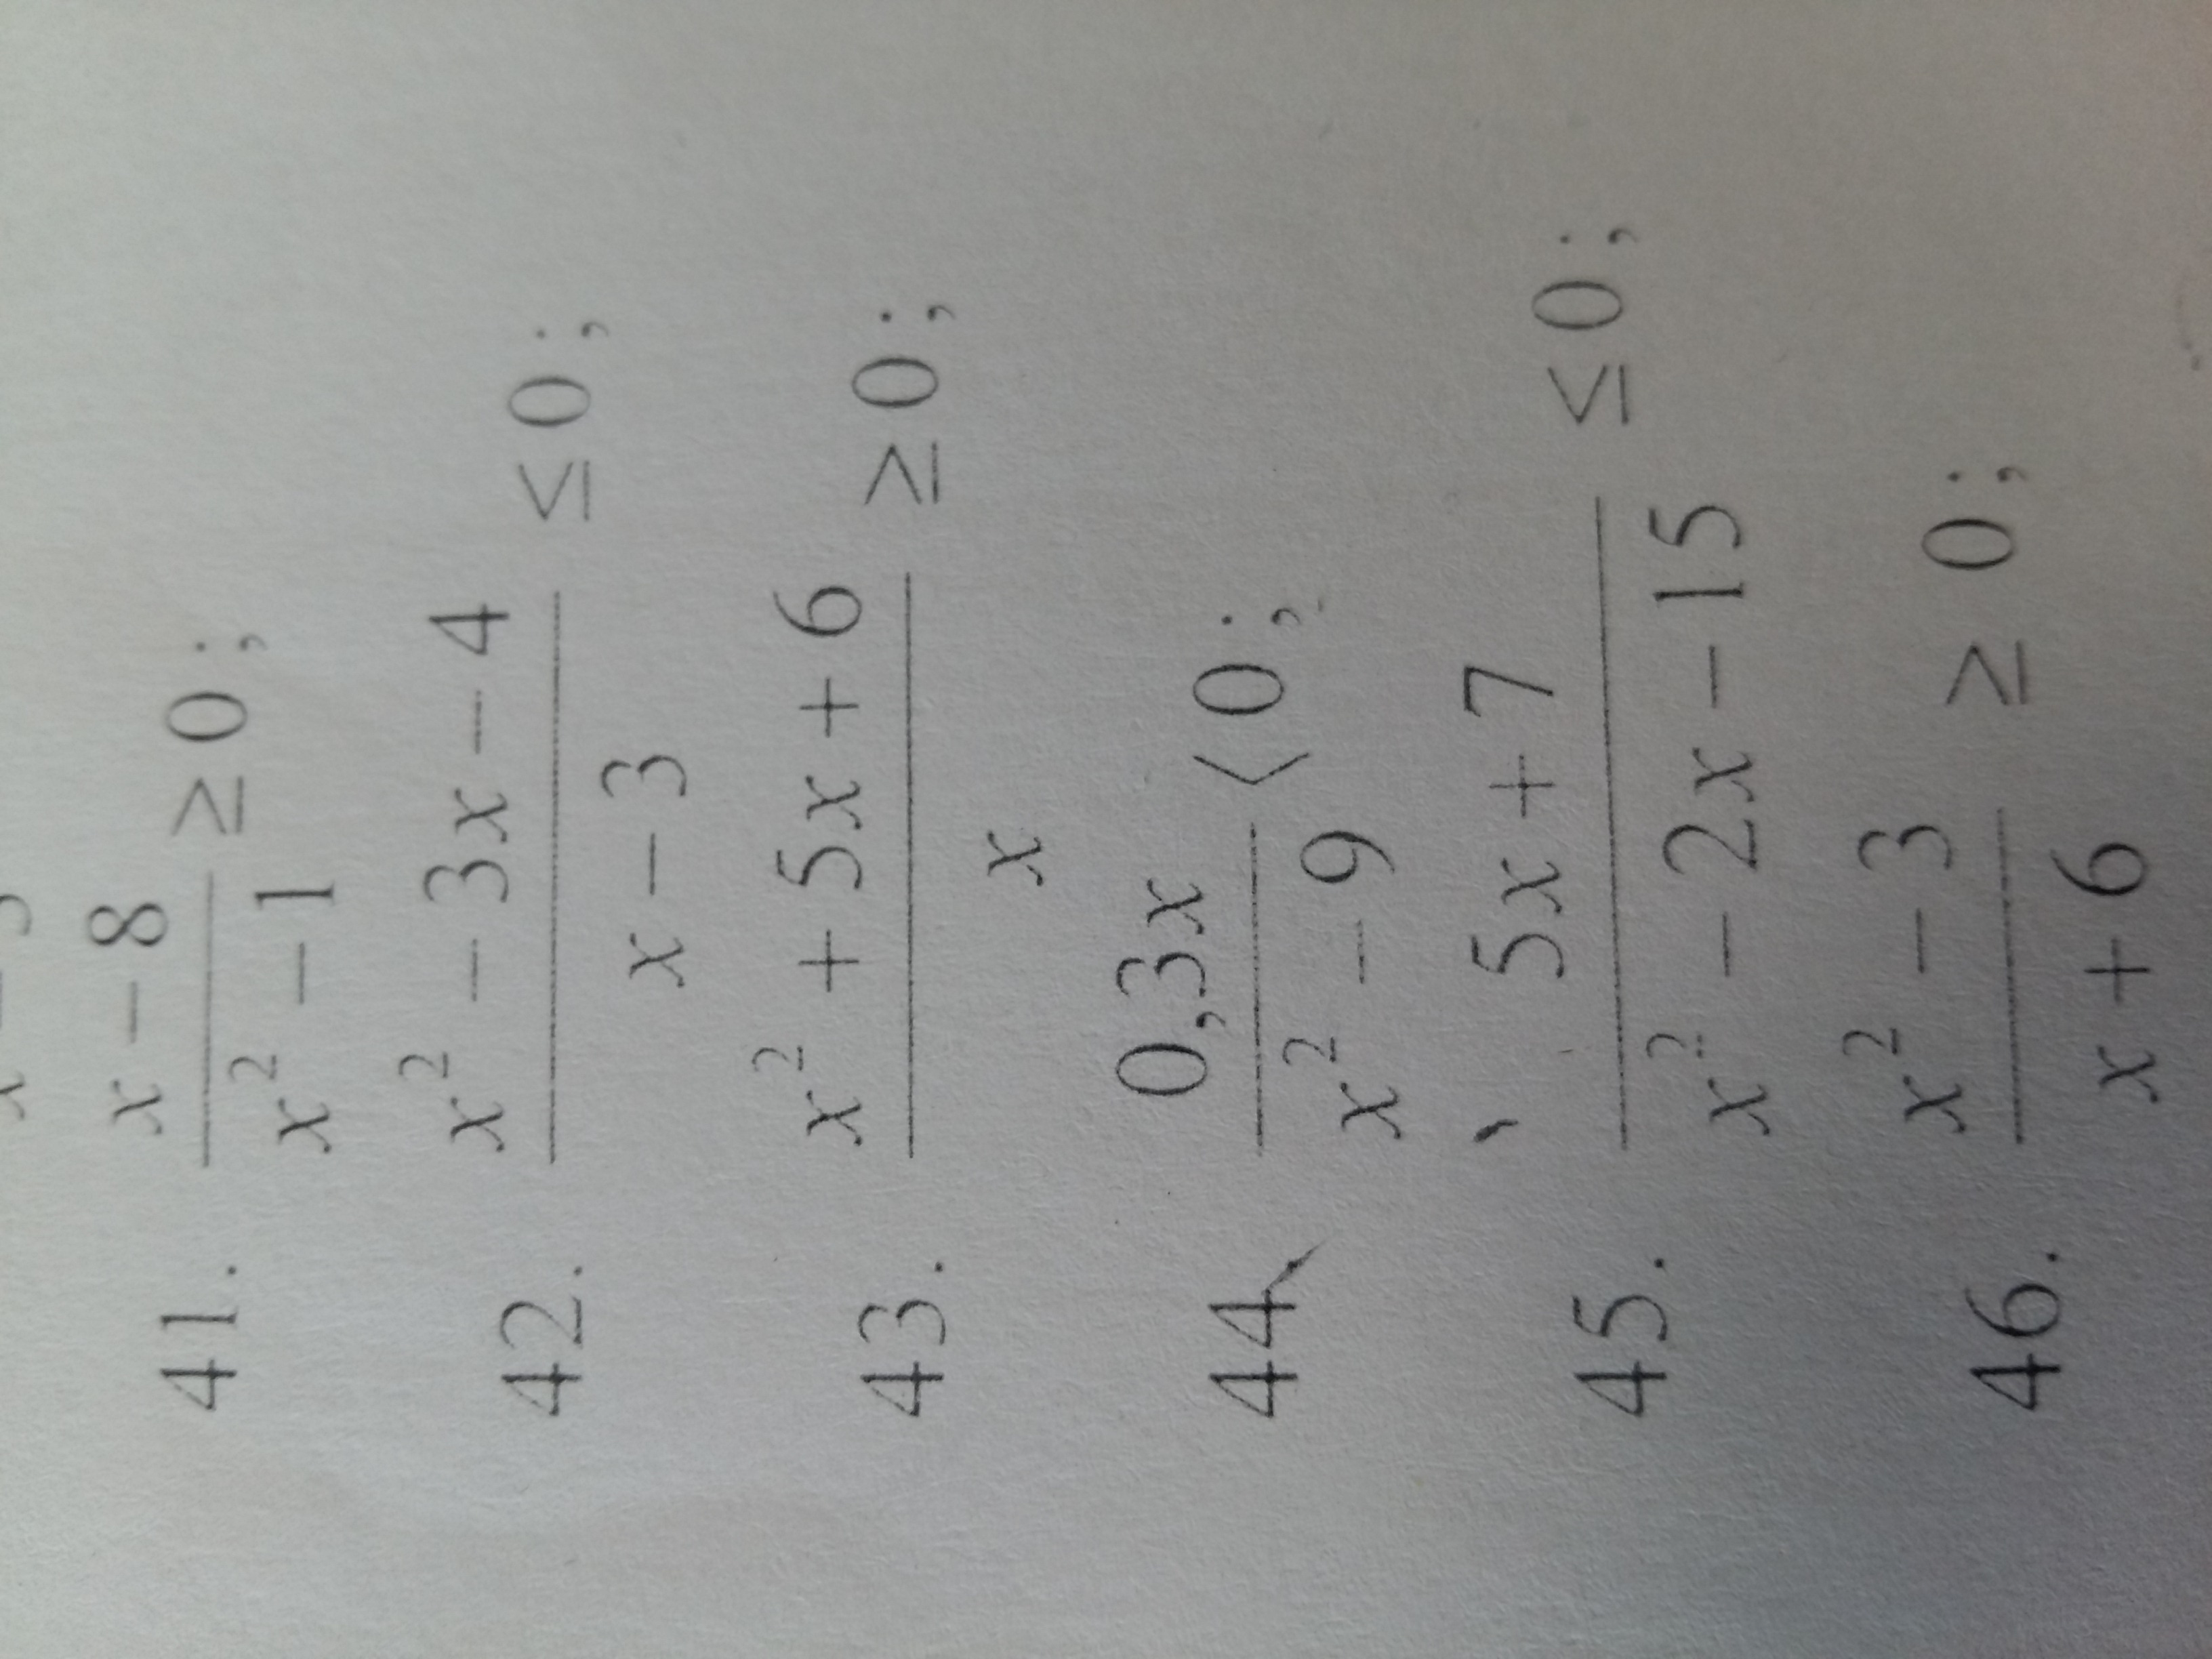 41. (x - 8)/(x² - 1) ≥ 0;
42. (x² - 3x - 4)/(x - 3) ≤ 0;
43. (x² + 5x + 6)/x ≥ 0;
44. 0,3x/(x² - 9) < 0;
45. (5x + 7)/(x² - 2x - 15) ≤ 0;
46. (x² - 3)/(x + 6) ≥ 0;